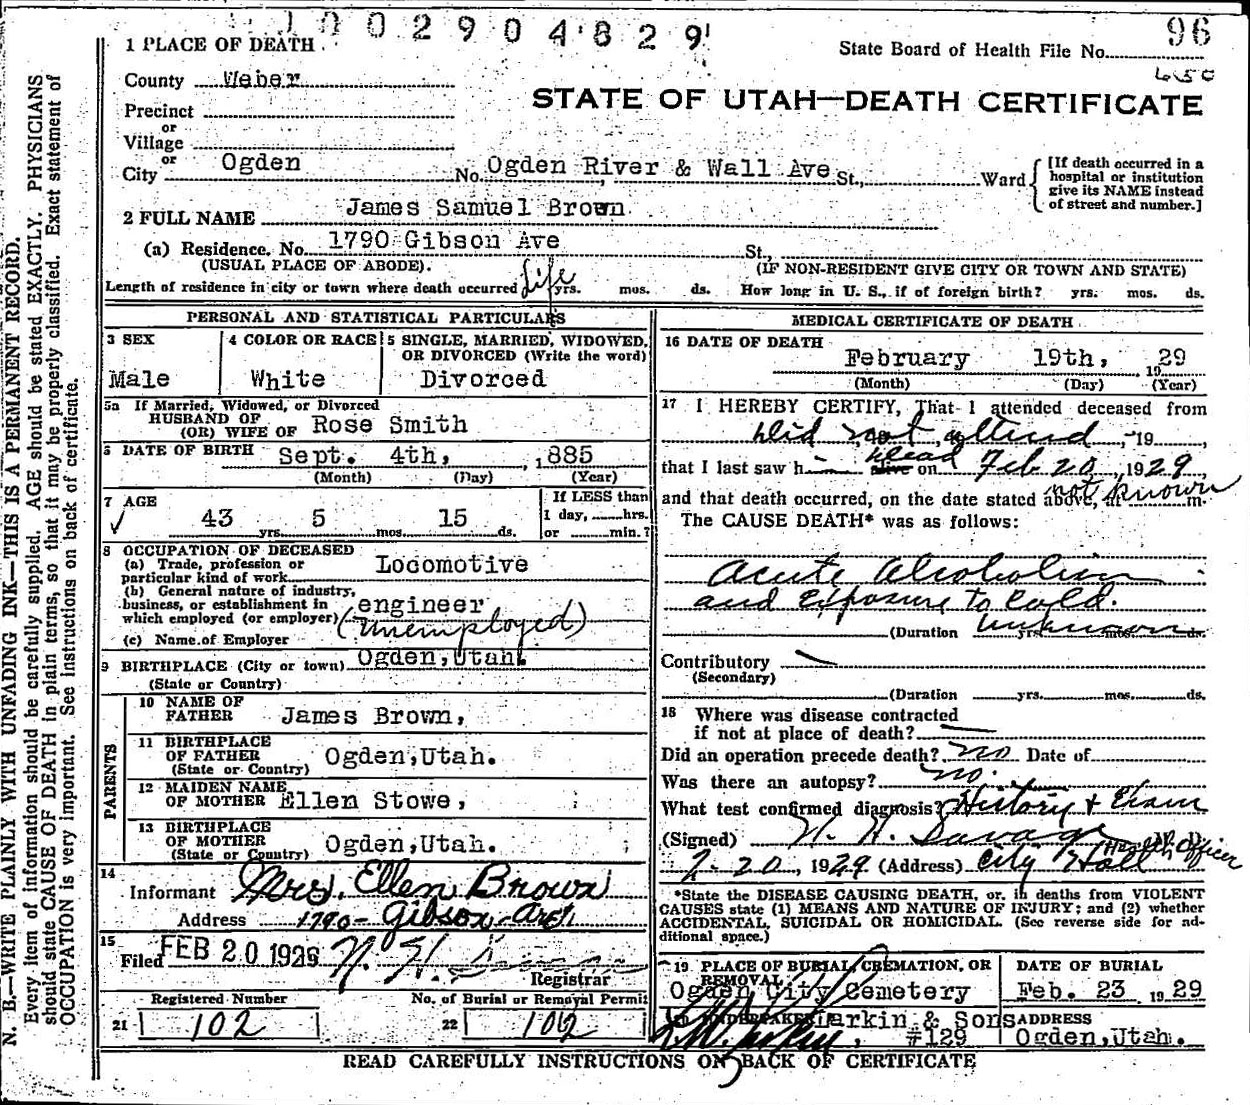 1002904829
96
State Board of Health File No.
650
1 PLACE OF DEATH
County Weber
STATE OF UTAH—DEATH CERTIFICATE
Precinct
or
Village
or
City Ogden No. Ogden River & Wall Ave St., Ward
[If death occurred in a
hospital or institution
give its NAME instead
of street and number.]
2 FULL NAME James Samuel Brown
(a) Residence, No. 1790 Gibson Ave St.,
(USUAL PLACE OF ABODE). (IF NON-RESIDENT GIVE CITY OR TOWN AND STATE)
Length of residence in city or town where death occurred Life yrs. mos. ds. How long in U. S., if of foreign birth? yrs. mos. ds.
PERSONAL AND STATISTICAL PARTICULARS
3 SEX
Male
4 COLOR OR RACE
White
5 SINGLE, MARRIED, WIDOWED,
OR DIVORCED (Write the word)
Divorced
5a If Married, Widowed, or Divorced
HUSBAND OF
(OR) WIFE OF Rose Smith
6 DATE OF BIRTH Sept. 4th, 1885
(Month) (Day) (Year)
7 AGE
43 yrs. 5 mos. 15 ds.
If LESS than
1 day, hrs.
or min.?
8 OCCUPATION OF DECEASED
(a) Trade, profession or
particular kind of work Locomotive
(b) General nature of industry,
business, or establishment in
which employed (or employer) engineer
(Unemployed)
(c) Name of Employer
9 BIRTHPLACE (City or town) Ogden, Utah.
(State or Country)
PARENTS
10 NAME OF
FATHER James Brown,
11 BIRTHPLACE
OF FATHER Ogden, Utah.
(State or Country)
12 MAIDEN NAME
OF MOTHER Ellen Stowe,
13 BIRTHPLACE
OF MOTHER Ogden, Utah.
(State or Country)
14
Informant Mrs. Ellen Brown
Address 1790- Gibson- Ave.
15
Filed FEB 20 1929
Registrar
Registered Number
21 102
No. of Burial or Removal Permit
22 102
MEDICAL CERTIFICATE OF DEATH
16 DATE OF DEATH
February 19th, 1929
(Month) (Day) (Year)
17 I HEREBY CERTIFY, That I attended deceased from
Did not attend , 19 ,
that I last saw h alive dead on Feb 20, 1929,
and that death occurred, on the date stated above, at not known m.
The CAUSE DEATH* was as follows:
Acute Alcoholism
and Exposure to Cold.
(Duration unknown yrs. mos. ds.
Contributory
(Secondary)
(Duration yrs. mos. ds.
18 Where was disease contracted
if not at place of death?
Did an operation precede death? no Date of
Was there an autopsy? no.
What test confirmed diagnosis? History & Exam
(Signed) H. H. Savage M. D.
Health Officer
2-20, 1929 (Address) City Hall
*State the DISEASE CAUSING DEATH, or, in deaths from VIOLENT
CAUSES state (1) MEANS AND NATURE OF INJURY; and (2) whether
ACCIDENTAL, SUICIDAL OR HOMICIDAL. (See reverse side for ad-
ditional space.)
19 PLACE OF BURIAL, CREMATION, OR
REMOVAL
Ogden City Cemetery
DATE OF BURIAL
Feb. 23 1929
20 UNDERTAKER Larkin & Sons
#129
ADDRESS
Ogden, Utah.
READ CAREFULLY INSTRUCTIONS ON BACK OF CERTIFICATE
N. B.—WRITE PLAINLY WITH UNFADING INK—THIS IS A PERMANENT RECORD.
Every item of information should be carefully supplied. AGE should be stated EXACTLY. PHYSICIANS
should state CAUSE OF DEATH in plain terms, so that it may be properly classified. Exact statement of
OCCUPATION is very important. See instructions on back of certificate.